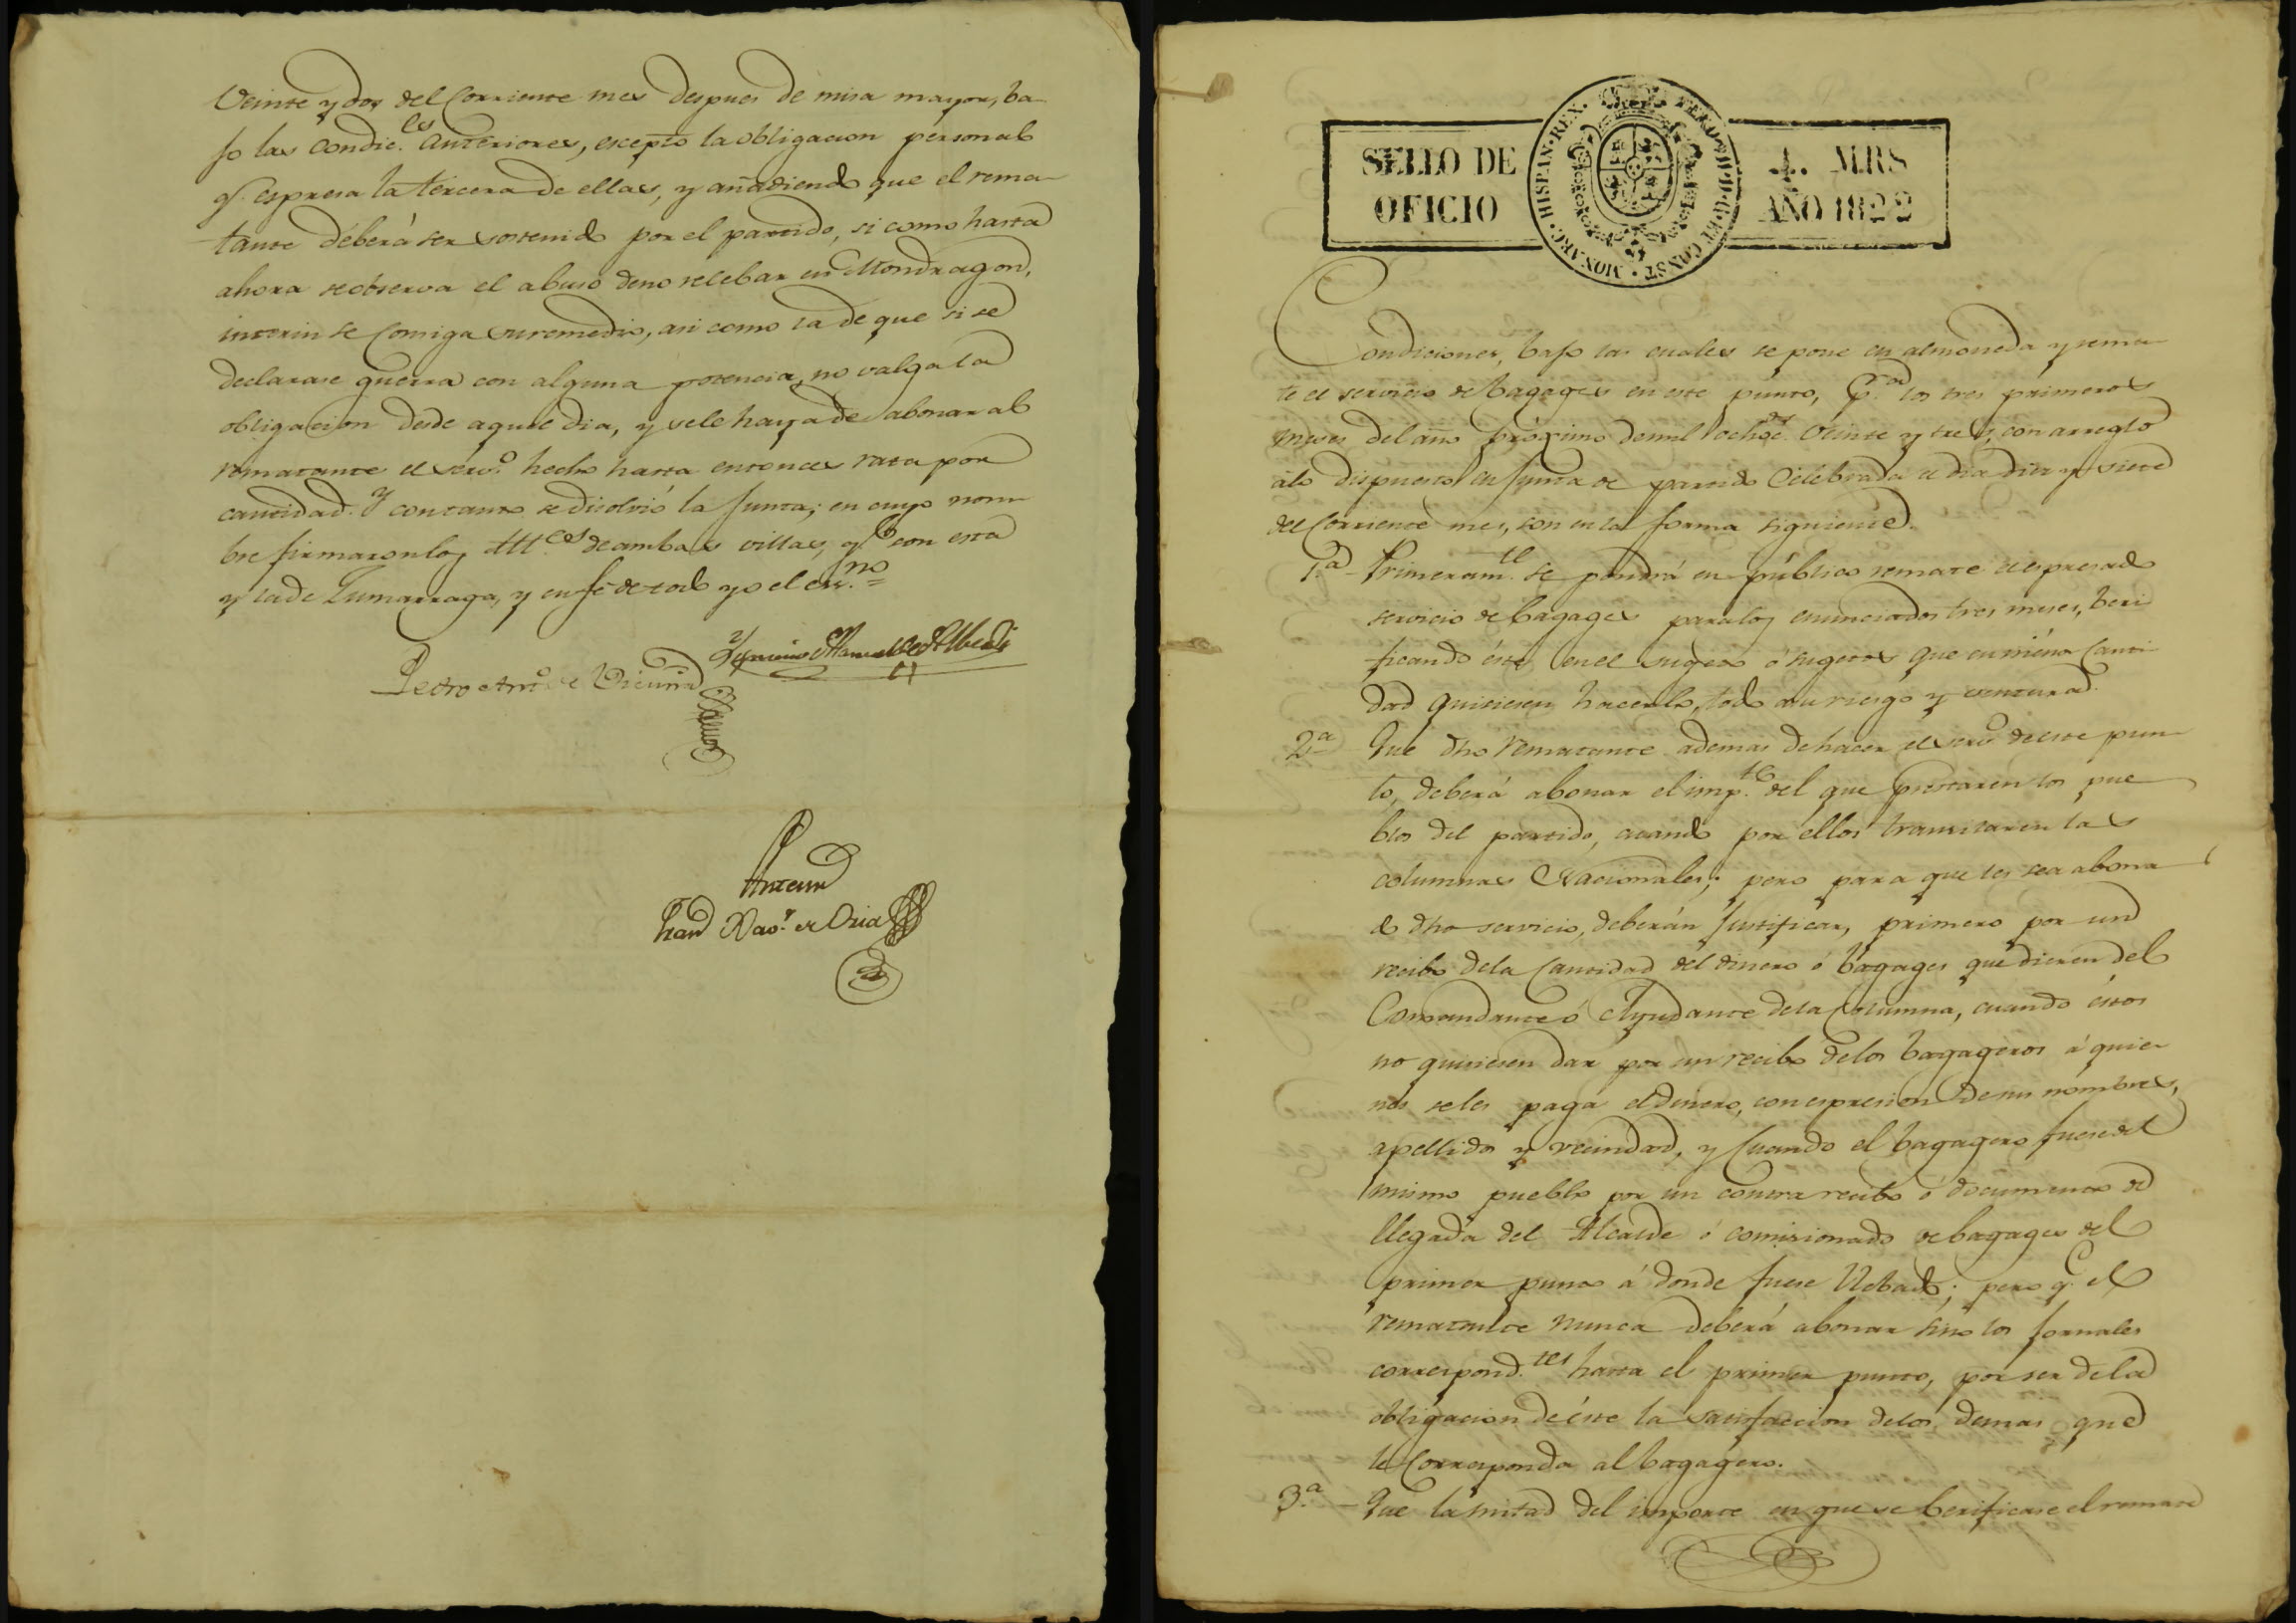 Veinte y dos del Corriente mes despues de misa mayor, ba-
jo las condic.es anteriores, escepto la obligacion personal
q.e espresa la tercera de ellas, y añadiendo que el rema-
tante deberá ser sostenido por el partido, si como hasta
ahora se observa el abuso de no relebar en Mondragon,
interin se Consiga su remedio, asi como la de que si se
declarase guerra con alguna potencia, no valga la
obligacion desde aquel dia, y se le haya de abonar al
rematante el serv.o hecho hasta entonces rata por
cantidad. Y con tanto se disolvió la Junta; en cuyo nom-
bre firmaron los Alc.es de ambas villas, q.e son esta
y la de Zumarraga, y en fé de todo yo el ess.no =
Ygnacio Manuel de Alberdi
Pedro Ant.o de Vicuña
Antemi
Juan Nav.r de Oria
SELLO DE OFICIO
4. MRS AÑO 1822
FERD. VII. D. G. ET CONST. MONARC. HISPAN. REX.
Condiciones, bajo las cuales se pone en almoneda y rema-
te el servicio de bagages en este punto, p.a los tres primeros
meses del año próximo de mil ochoc.s veinte y tres, con arreglo
a lo dispuesto en Junta de partido Celebrada el dia diez y siete
del Corriente mes, son en la forma siguiente.
1.a - Primeram.te se pondrá en público remate el espresado
servicio de bagages para los enunciados tres meses, beri-
ficando éste en el sugeto ó sugetos que en menos Canti-
dad quisiesen hacerlo, todo a su riesgo y ventura.
2.a Que dho rematante ademas de hacer el serv.o de este pun-
to, deberá abonar el imp.te del que prestaren los pue-
blos del partido, cuando por ellos transitaren las
columnas Nacionales; pero para que les sea abona-
do dho servicio, deberán Justificar, primero por un
recibo de la Cantidad del dinero ó bagages que dieren del
Comandante ó Ayudante de la Columna, cuando éstos
no quisiesen dar por un recibo de los bagageros á quie-
nes se les paga el dinero, con espresion de sus nombres,
apellidos y vecindad, y Cuando el bagagero fuese del
mismo pueblo por un contra recibo ó documento de
llegada del Alcalde ó comisionado de bagages del
primer punto á donde fuese llebado; pero q.e el
rematante nunca deberá abonar sino los jornales
correspond.tes hasta el primer punto, por ser de la
obligacion de éste la satisfaccion de los demas que
le Corresponda al bagagero.
3.a - Que la mitad del importe en que se berificase el remate